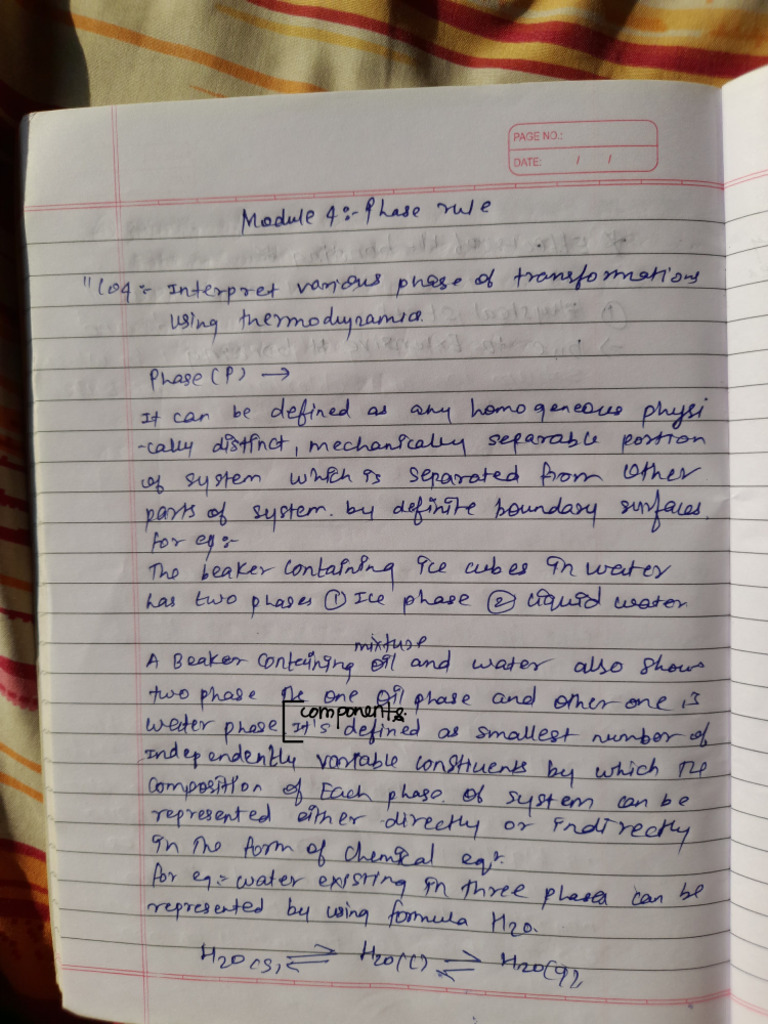 PAGE NO.:
DATE: / /
Module 4:- Phase rule
"CO4:- Interpret various phase of transformations
using thermodynamics.
Phase (P) →
It can be defined as any homogeneous physi
-cally distinct, mechanically separable portion
of system which is separated from other
parts of system. by definite boundary surfaces.
for eg:-
The beaker containing ice cubes in water
has two phases ① Ice phase ② liquid water
mixture
A Beaker containing oil and water also shows
two phase the one oil phase and other one is
components.
water phase [It's defined as smallest number of
independently variable constiuents by which the
composition of Each phase. of system can be
represented either directly or indirectly
in the form of chemical eqn.
for eg:- water existing in three phases can be
represented by using formula H2O.
H2O(s) ⇌ H2O(l) ⇌ H2O(g),